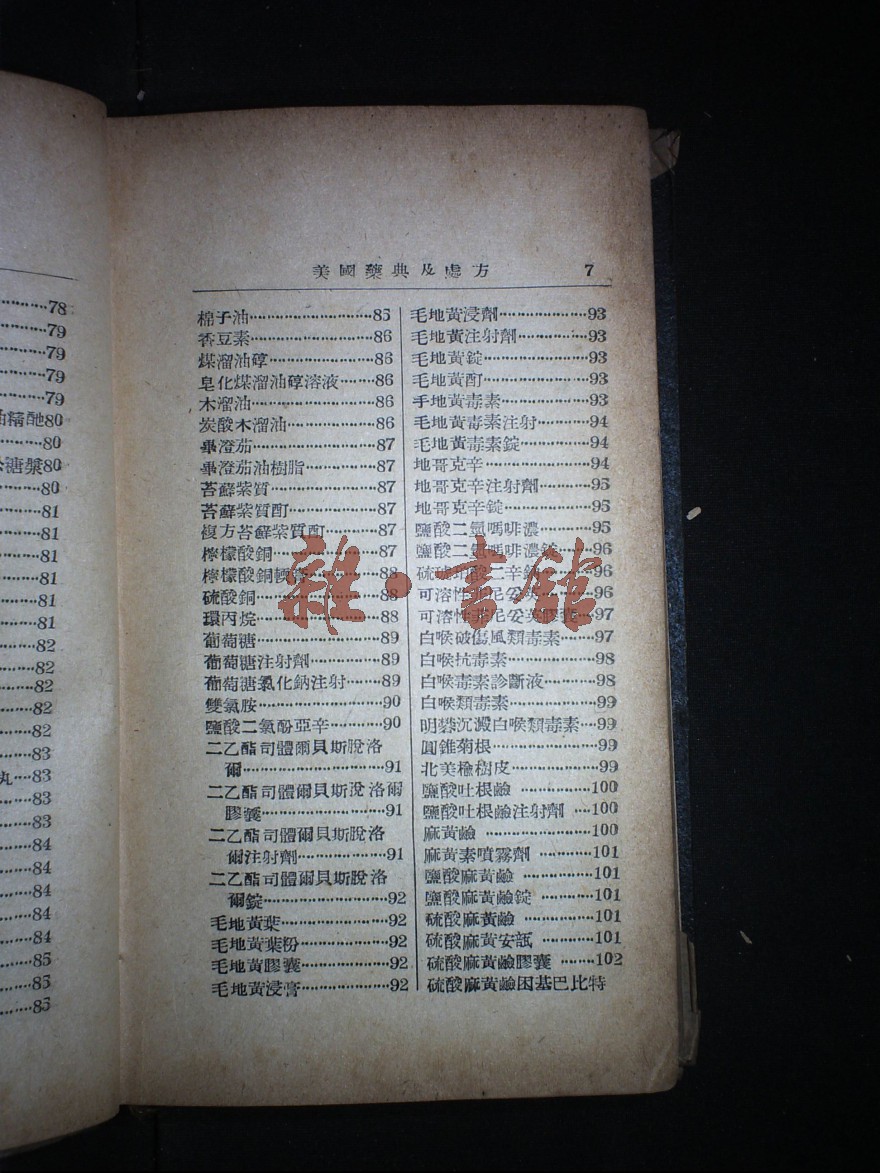 78
79
79
79
79
油精酏80
80
糖漿80
80
81
81
81
81
81
82
82
82
82
83
丸…83
83
83
84
84
84
84
85
85
85
美國藥典及處方 7
棉子油…85
香豆素…86
煤溜油醇…86
皂化煤溜油醇溶液…86
木溜油…86
炭酸木溜油…86
畢澄茄…87
畢澄茄油樹脂…87
苔蘚紫質…87
苔蘚紫質酊…87
複方苔蘚紫質酊…87
檸檬酸銅…87
檸檬酸銅軟膏…88
硫酸銅…88
環丙烷…88
葡萄糖…89
葡萄糖注射劑…89
葡萄糖氯化鈉注射…89
雙氯胺…90
鹽酸二氯酚亞辛…90
二乙酯司體爾貝斯脫洛
爾…91
二乙酯司體爾貝斯脫洛爾
膠囊…91
二乙酯司體爾貝斯脫洛
爾注射劑…91
二乙酯司體爾貝斯脫洛
爾錠…92
毛地黃葉…92
毛地黃葉粉…92
毛地黃膠囊…92
毛地黃浸膏…92
毛地黃浸劑…93
毛地黃注射劑…93
毛地黃錠…93
毛地黃酊…93
手地黃毒素…93
毛地黃毒素注射…94
毛地黃毒素錠…94
地哥克辛…94
地哥克辛注射劑…95
地哥克辛錠…95
鹽酸二氫嗎啡濃…95
鹽酸二氫嗎啡濃錠…96
硫琥珀酸二辛鈉…96
可溶性菲尼妥英…96
可溶性菲尼妥英膠囊…97
白喉破傷風類毒素…97
白喉抗毒素…98
白喉毒素診斷液…98
白喉類毒素…99
明礬沉澱白喉類毒素…99
圓錐菊根…99
北美榆樹皮…99
鹽酸吐根鹼…100
鹽酸吐根鹼注射劑…100
麻黃鹼…100
麻黃素噴霧劑…101
鹽酸麻黃鹼…101
鹽酸麻黃鹼錠…101
硫酸麻黃鹼…101
硫酸麻黃安瓿…101
硫酸麻黃鹼膠囊…102
硫酸麻黃鹼因基巴比特
雜·書館